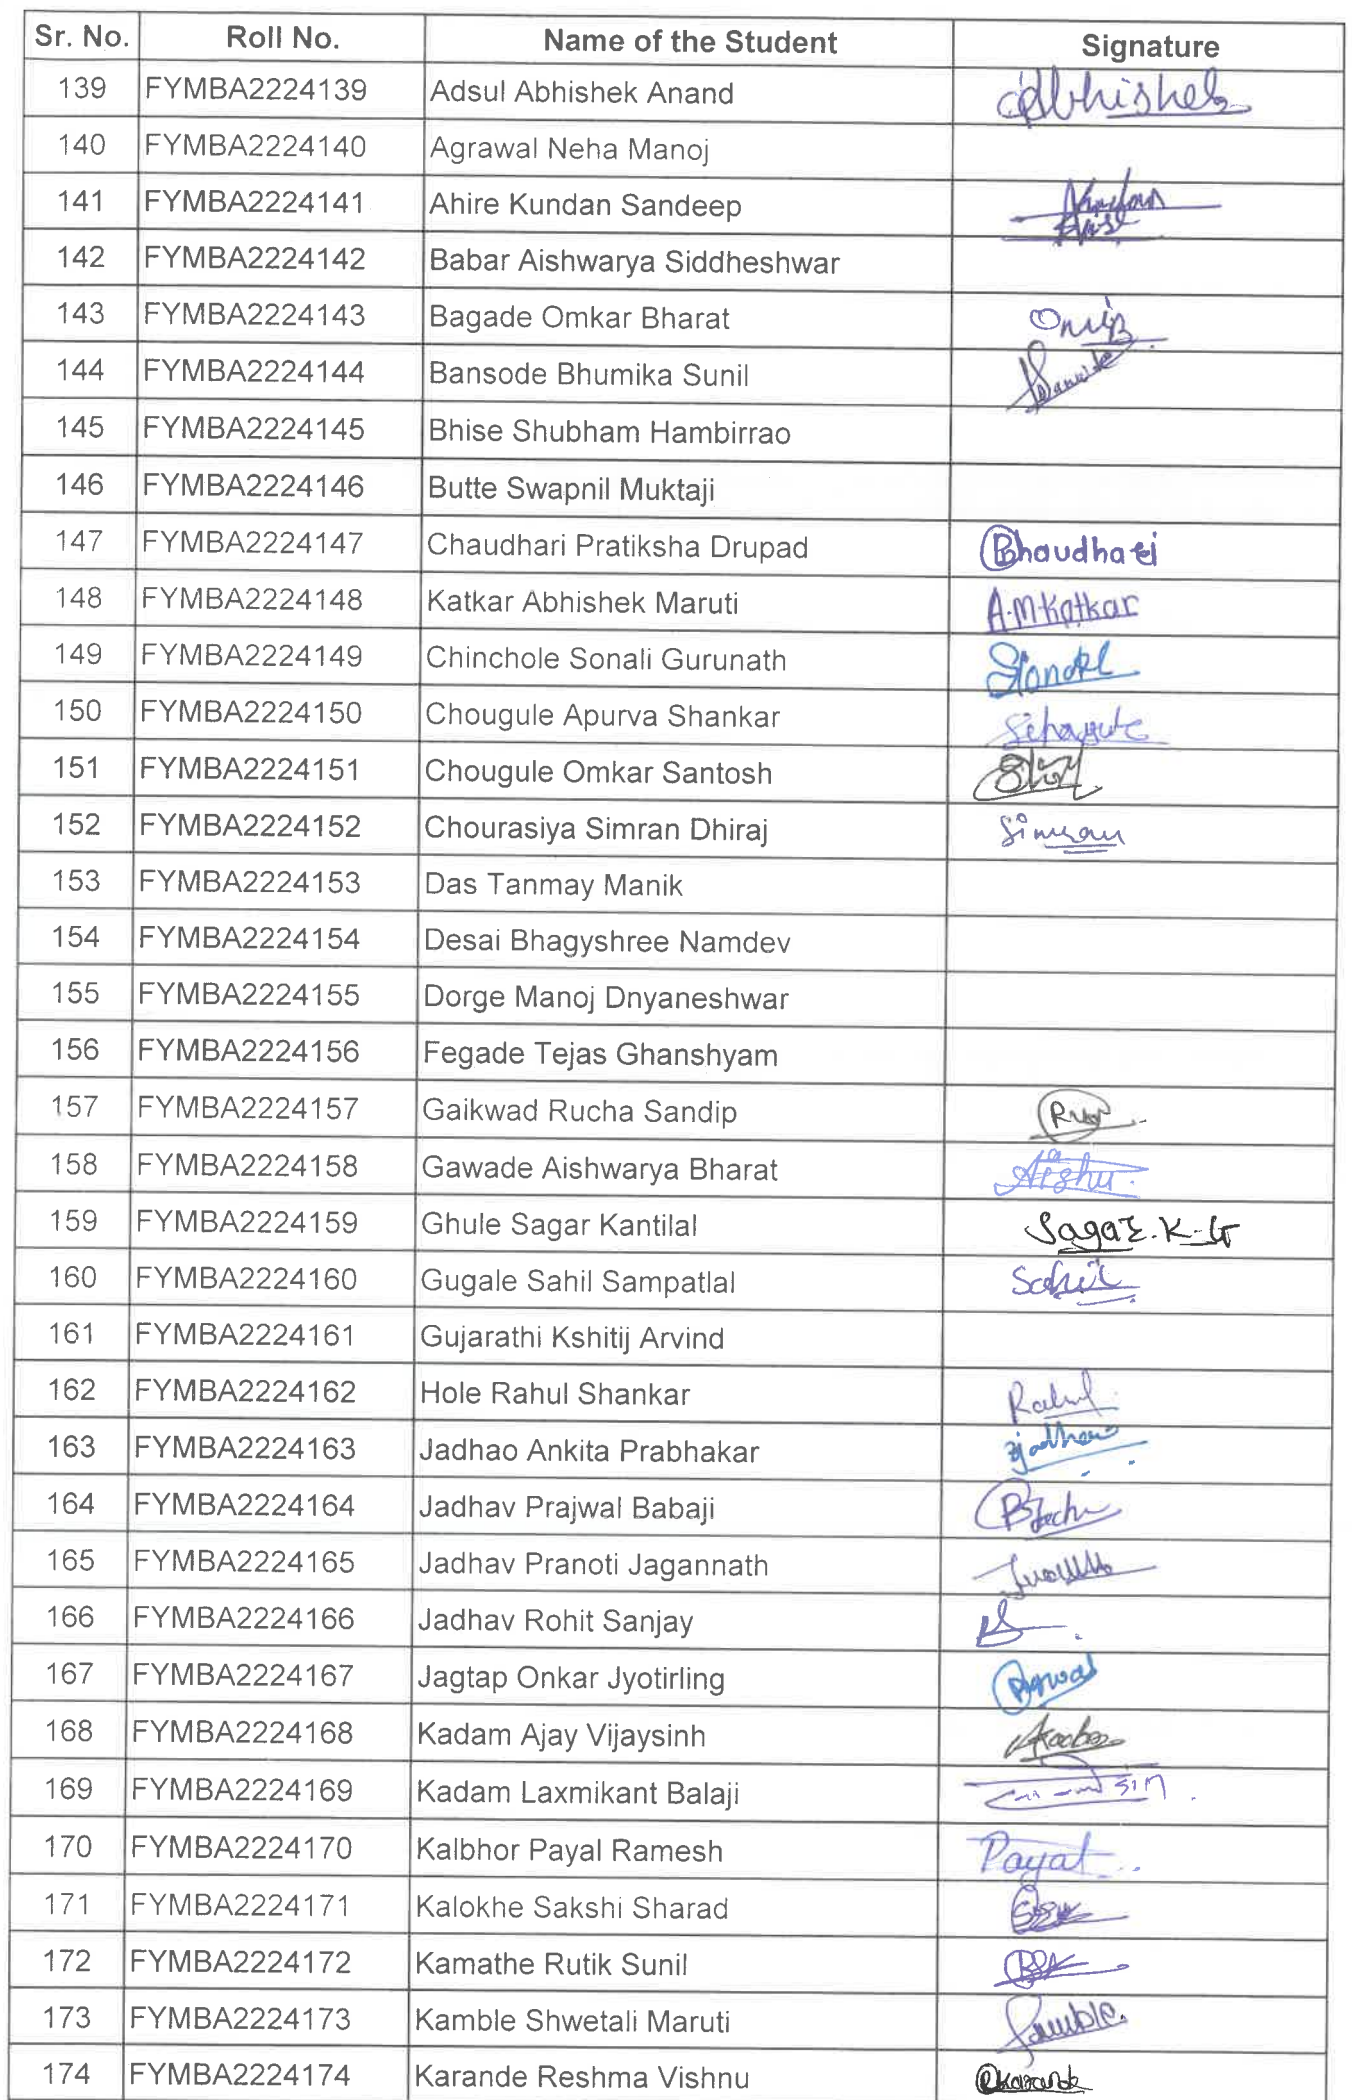 Sr. No. Roll No. Name of the Student Signature
139 FYMBA2224139 Adsul Abhishek Anand Abhishek
140 FYMBA2224140 Agrawal Neha Manoj
141 FYMBA2224141 Ahire Kundan Sandeep
142 FYMBA2224142 Babar Aishwarya Siddheshwar
143 FYMBA2224143 Bagade Omkar Bharat
144 FYMBA2224144 Bansode Bhumika Sunil
145 FYMBA2224145 Bhise Shubham Hambirrao
146 FYMBA2224146 Butte Swapnil Muktaji
147 FYMBA2224147 Chaudhari Pratiksha Drupad
148 FYMBA2224148 Katkar Abhishek Maruti A.M.Katkar
149 FYMBA2224149 Chinchole Sonali Gurunath
150 FYMBA2224150 Chougule Apurva Shankar
151 FYMBA2224151 Chougule Omkar Santosh
152 FYMBA2224152 Chourasiya Simran Dhiraj Simran
153 FYMBA2224153 Das Tanmay Manik
154 FYMBA2224154 Desai Bhagyshree Namdev
155 FYMBA2224155 Dorge Manoj Dnyaneshwar
156 FYMBA2224156 Fegade Tejas Ghanshyam
157 FYMBA2224157 Gaikwad Rucha Sandip
158 FYMBA2224158 Gawade Aishwarya Bharat Aishu
159 FYMBA2224159 Ghule Sagar Kantilal Sagar.K.G
160 FYMBA2224160 Gugale Sahil Sampatlal Sahil
161 FYMBA2224161 Gujarathi Kshitij Arvind
162 FYMBA2224162 Hole Rahul Shankar Rahul
163 FYMBA2224163 Jadhao Ankita Prabhakar
164 FYMBA2224164 Jadhav Prajwal Babaji
165 FYMBA2224165 Jadhav Pranoti Jagannath
166 FYMBA2224166 Jadhav Rohit Sanjay
167 FYMBA2224167 Jagtap Onkar Jyotirling
168 FYMBA2224168 Kadam Ajay Vijaysinh
169 FYMBA2224169 Kadam Laxmikant Balaji
170 FYMBA2224170 Kalbhor Payal Ramesh Payal
171 FYMBA2224171 Kalokhe Sakshi Sharad
172 FYMBA2224172 Kamathe Rutik Sunil
173 FYMBA2224173 Kamble Shwetali Maruti
174 FYMBA2224174 Karande Reshma Vishnu RKarande